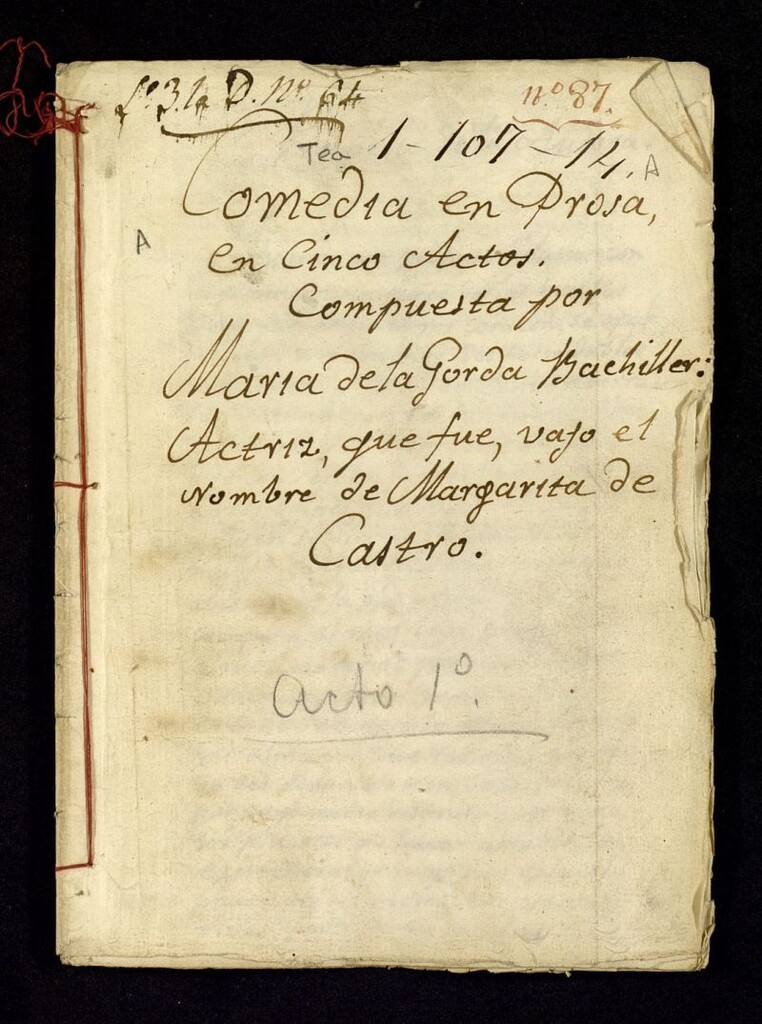 Lº 3. la D. nº. 64
nº 87.
Tea 1-107-14, A
Comedia en Prosa,
A
en Cinco Actos.
Compuesta por
Maria de la Gorda Bachiller:
Actriz, que fue, vajo el
Nombre de Margarita de
Castro.
Acto 1º.